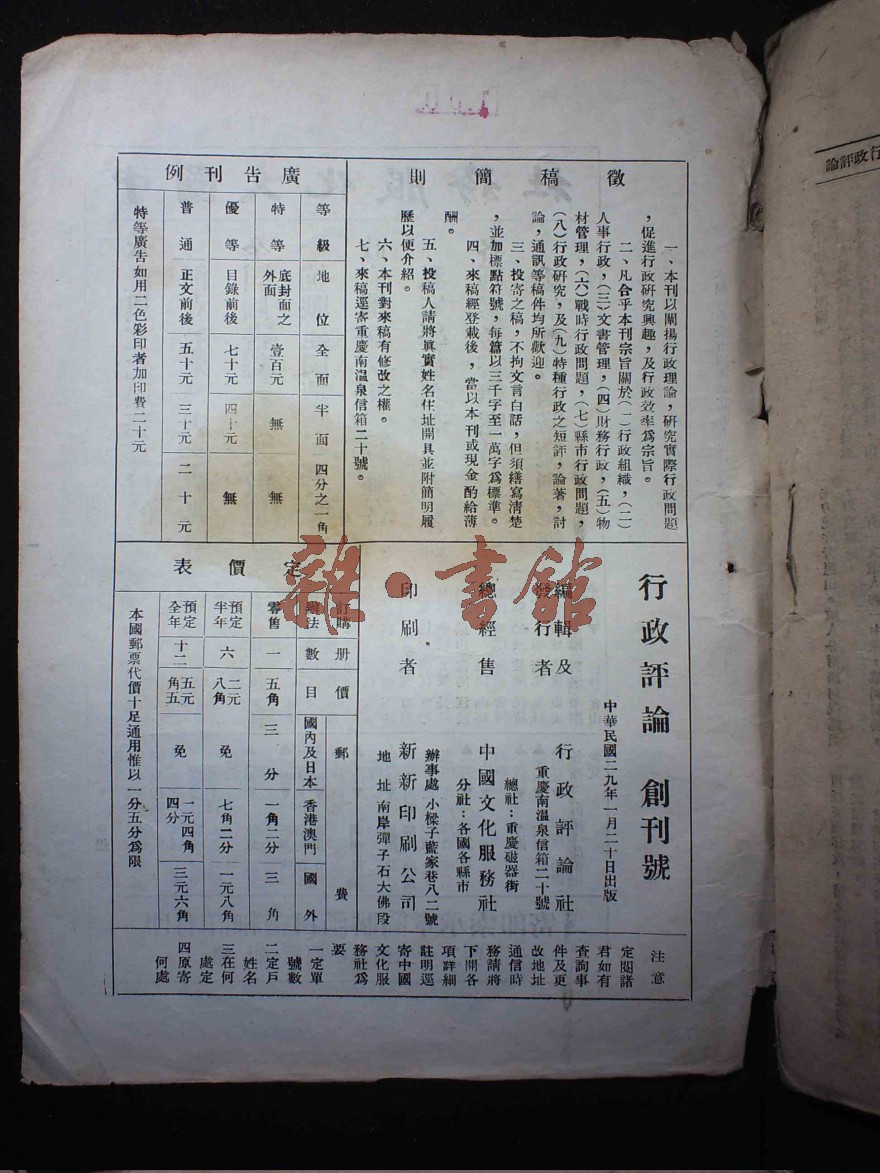 徵稿簡則
一、本刊以闡揚行政理論，研究實際行政問題
，促進行政研究興趣，及行政效率爲宗旨。
二、凡合乎本刊宗旨關於（一）行政組織，（二）
人事行政，（三）文書管理，（四）財務行政，（五）物
材管理，（六）戰時行政問題，（七）縣市行政問題，
（八）行政研究，及（九）特種行政之短評，論著，討
論，通訊等稿件均所歡迎。
三、投寄之稿，不拘文言白話，但須繕寫清楚
，並加標點符號，每篇以三千字至一萬字爲標準。
四、來稿經登載後，當以本刊或現金酌給薄
酬。
五、投稿人請將眞實姓名住址開具並附簡明履
歷以便介紹。
六、本刊對來稿有修改之權。
七、來稿逕寄重慶南溫泉信箱二十號。
廣告刊例
等級 地位 全面 半面 四分之一角
特等 底封面之外面 壹百元 無 無
優等 目錄前後 七十元 四十元 無
普通 正文前後 五十元 三十元 二十元
特等廣告如用二色彩印者加印費二十元
行政評論 創刊號
中華民國二九年一月二十日出版
編輯及
發行者
行政評論社
重慶南溫泉信箱二十號
總經售
總社：重慶磁器街
中國文化服務社
分社：各國各縣市
印刷者
辦事處 小樑子藍家巷八二號
新新印刷公司
地址 南岸彈子石大佛段
定價表
訂購辦法 册數 價目 郵費
國內及日本 香港澳門 國外
零售 一 五角 三分 一角二分 三角
預定半年 六 二元八角 免 七角二分 一元八角
預定全年 十二 五元五角 免 一元四角四分 三元六角
本國郵票代價十足通用惟以一分五分爲限
注意
定閱諸
君如有
查詢事
件及更
改地址
通信時
務請將
下開各
項詳細
註明逕
寄中國
文化服
務社爲
要
一定單
號數
二定戶
姓名
三在何
處定
四原寄
何處
行政評論
雜·書館